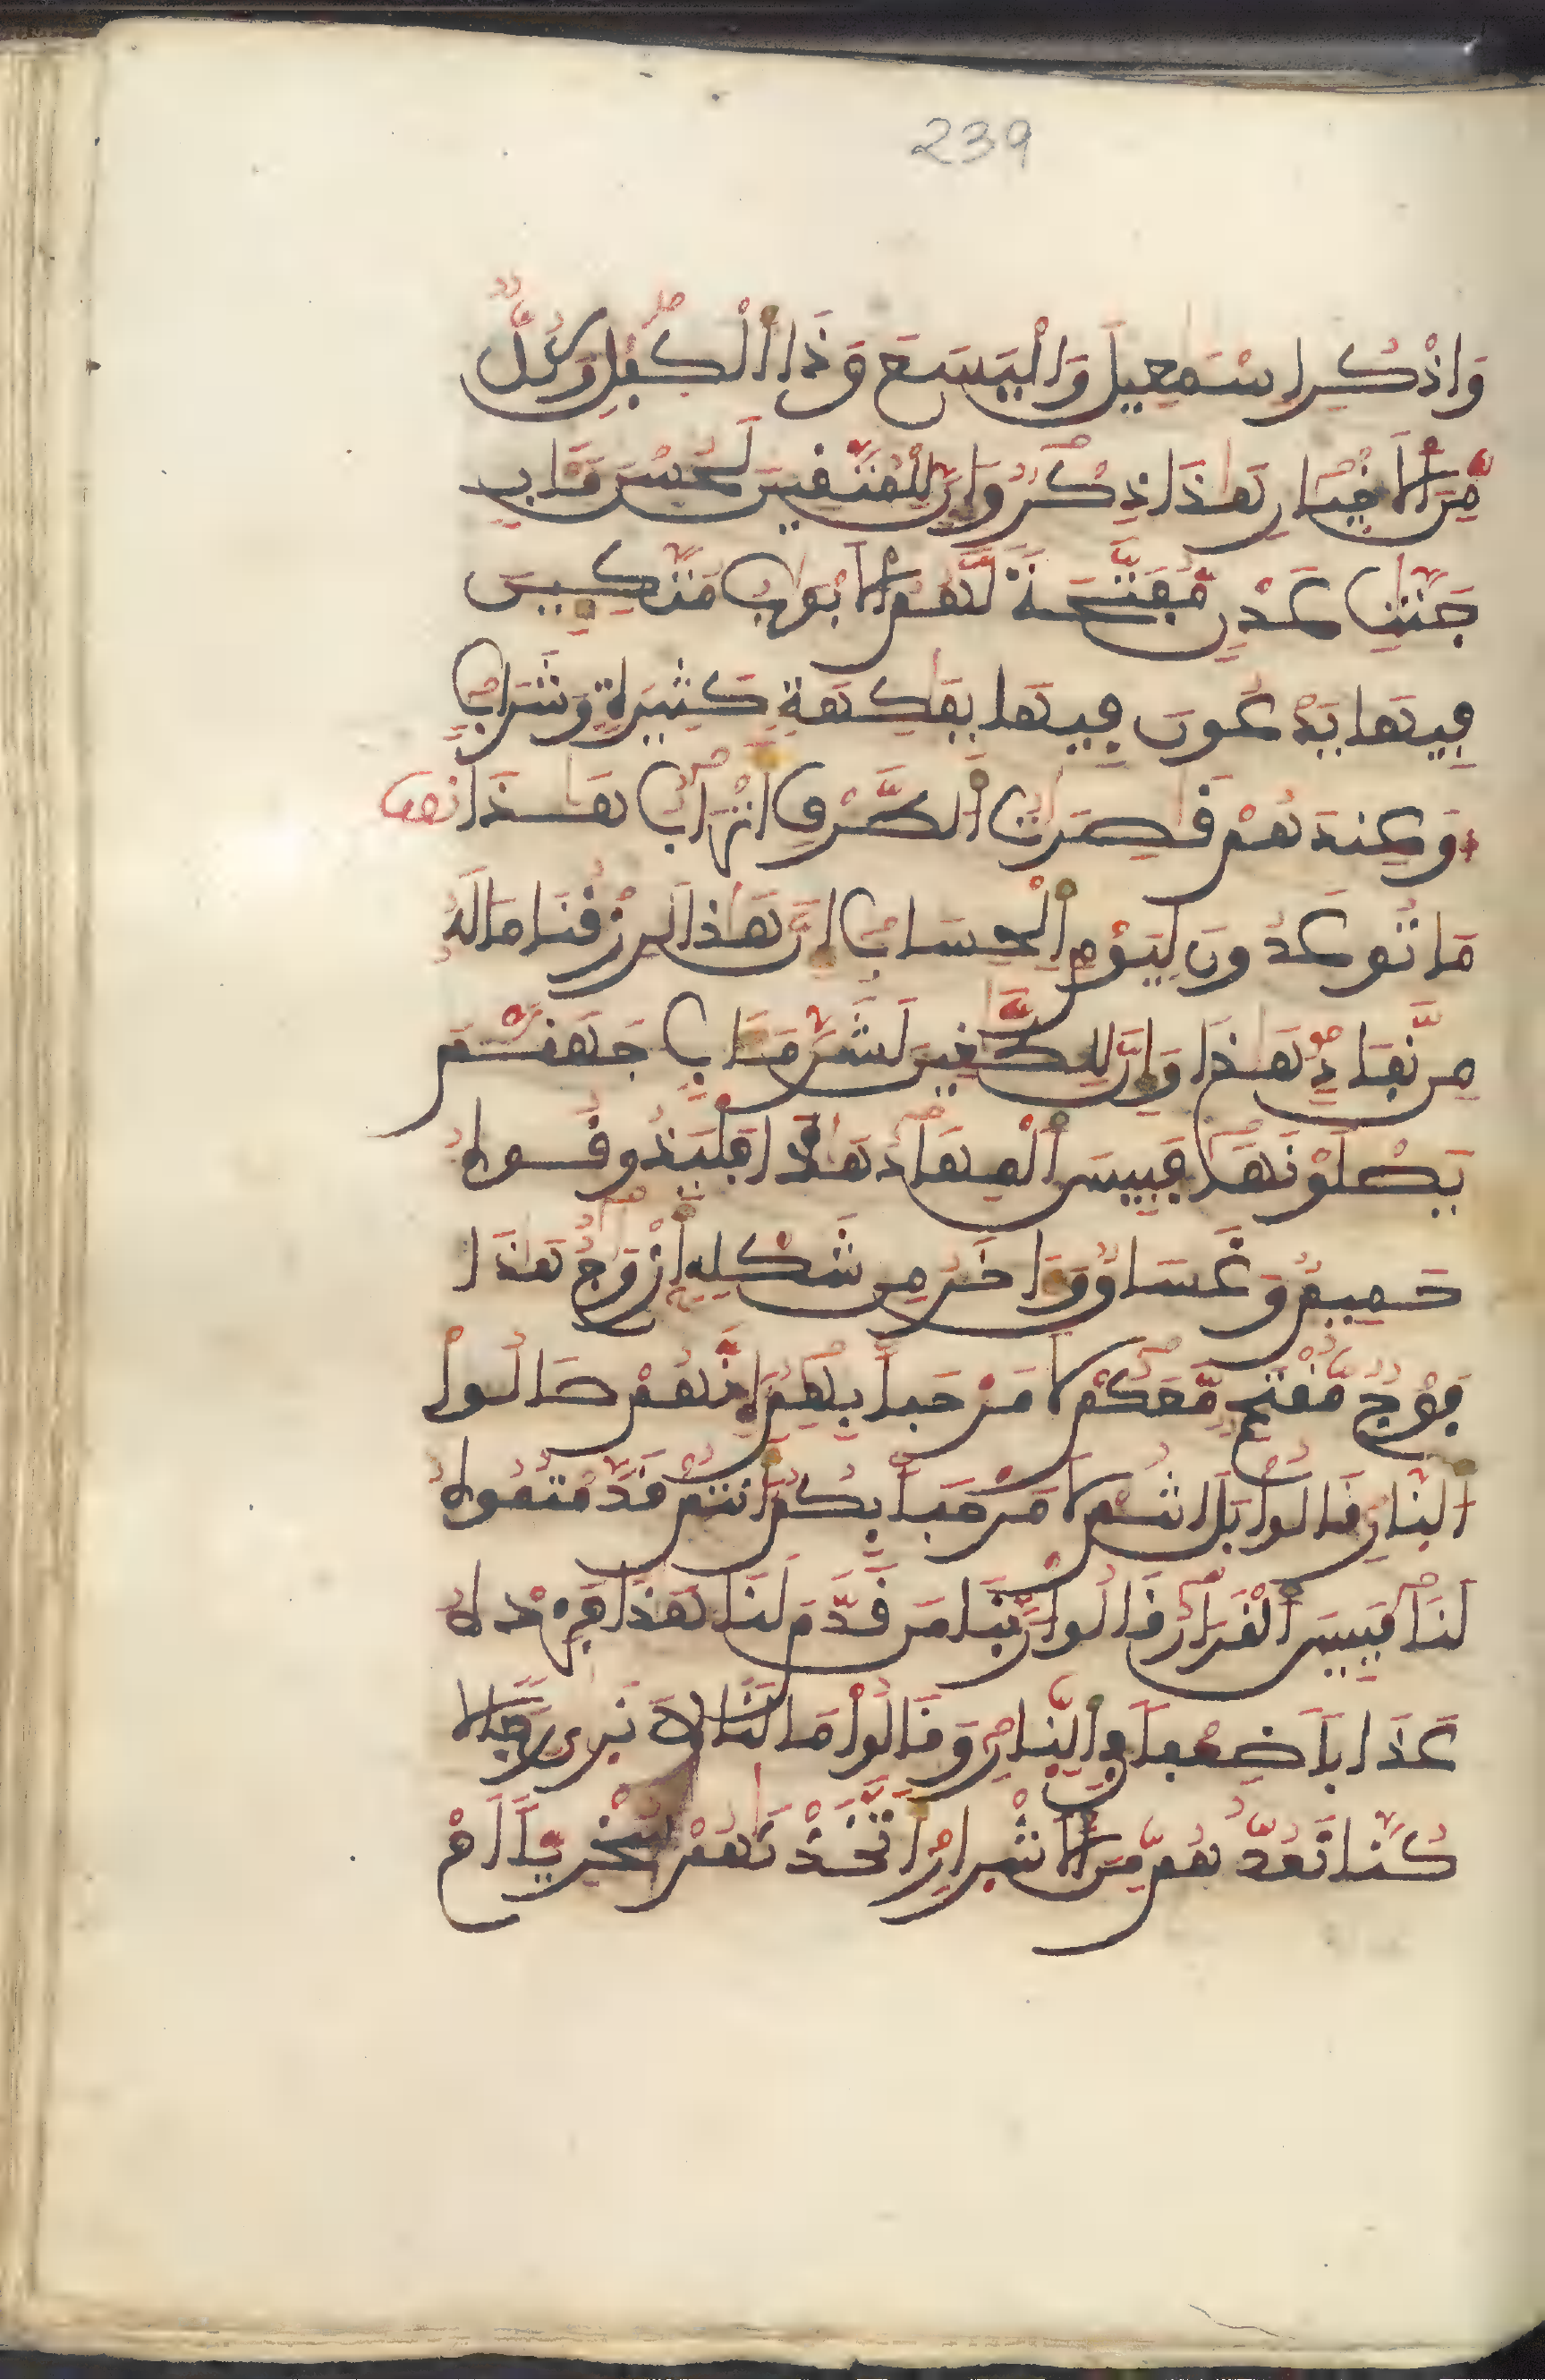 239
وَاذْكُرِ اسْمَعِيلَ وَالْيَسَعَ وَذَا الْكِفْلِ وَكُلٌّ
مِّنَ الَاخْيَارِ هَذَا ذِكْرٌ وَإِنَّ لِلْمُتَّقِينَ لَحُسْنَ مَـَٔابٍ
جَنَّتِ عَدْنٍ مُّفَتَّحَةً لَّهُمُ الَابْوَبُ مُتَّكِـِٔينَ
فِيهَا يَدْعُونَ فِيهَا بِفَكِهَةٍ كَثِيرَةٍ وَشَرَابٍ
وَعِندَهُمْ قَصِرَتُ الطَّرْفِ أَتْرَابٌ هَذَا نصف
مَا تُوعَدُونَ لِيَوْمِ الْحِسَابِ إِنَّ هَذَا لَرِزْقُنَا مَا لَهُ
مِن نَّفَادٍ هَذَا وَإِنَّ لِلطَّغِينَ لَشَرَّ مَـَٔابٍ جَهَنَّمَ
يَصْلَوْنَهَا فَبِيسَ الْمِهَادُ هَذَا فَلْيَذُوقُوهُ
حَمِيمٌ وَغَسَاقٌ وَءَاخَرُ مِن شَكْلِهِ أَزْوَجٌ هَذَا
فَوْجٌ مُّقْتَحِمٌ مَّعَكُمْ لَا مَرْحَباً بِهِمُ إِنَّهُمْ صَالُوا
النَّارِ قَالُوا بَلَ انتُمْ لَا مَرْحَباً بِكُمُ أَنتُمْ قَدَّمْتُمُوهُ
لَنَا فَبِيسَ الْقَرَارُ قَالُوا رَبَّنَا مَن قَدَّمَ لَنَا هَذَا فَزِدْهُ
عَذَاباً ضِعْفاً فِي النَّارِ وَقَالُوا مَا لَنَا لَا نَرَى رِجَالًا
كُنَّا نَعُدُّهُم مِّنَ الَاشْرَارِ أَتَّخَذْنَهُمْ سُخْرِيّاً اَمْ